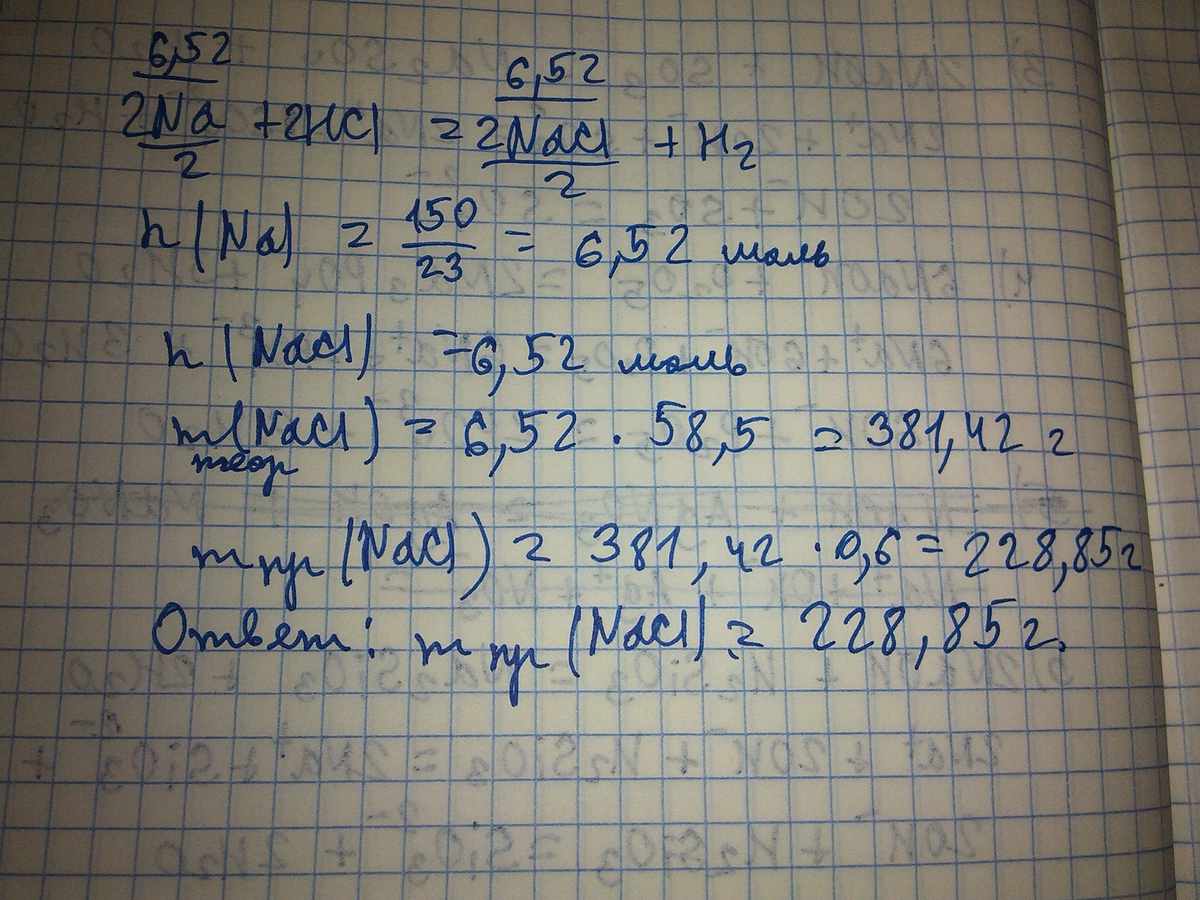 6,52 6,52
2Na + 2HCl = 2NaCl + H₂
2 2
n(Na) = 150/23 = 6,52 моль
n(NaCl) = 6,52 моль
m(NaCl) = 6,52 · 58,5 = 381,42 г
теор
m пр (NaCl) = 381,42 · 0,6 = 228,85 г
Ответ: m пр (NaCl) = 228,85 г.